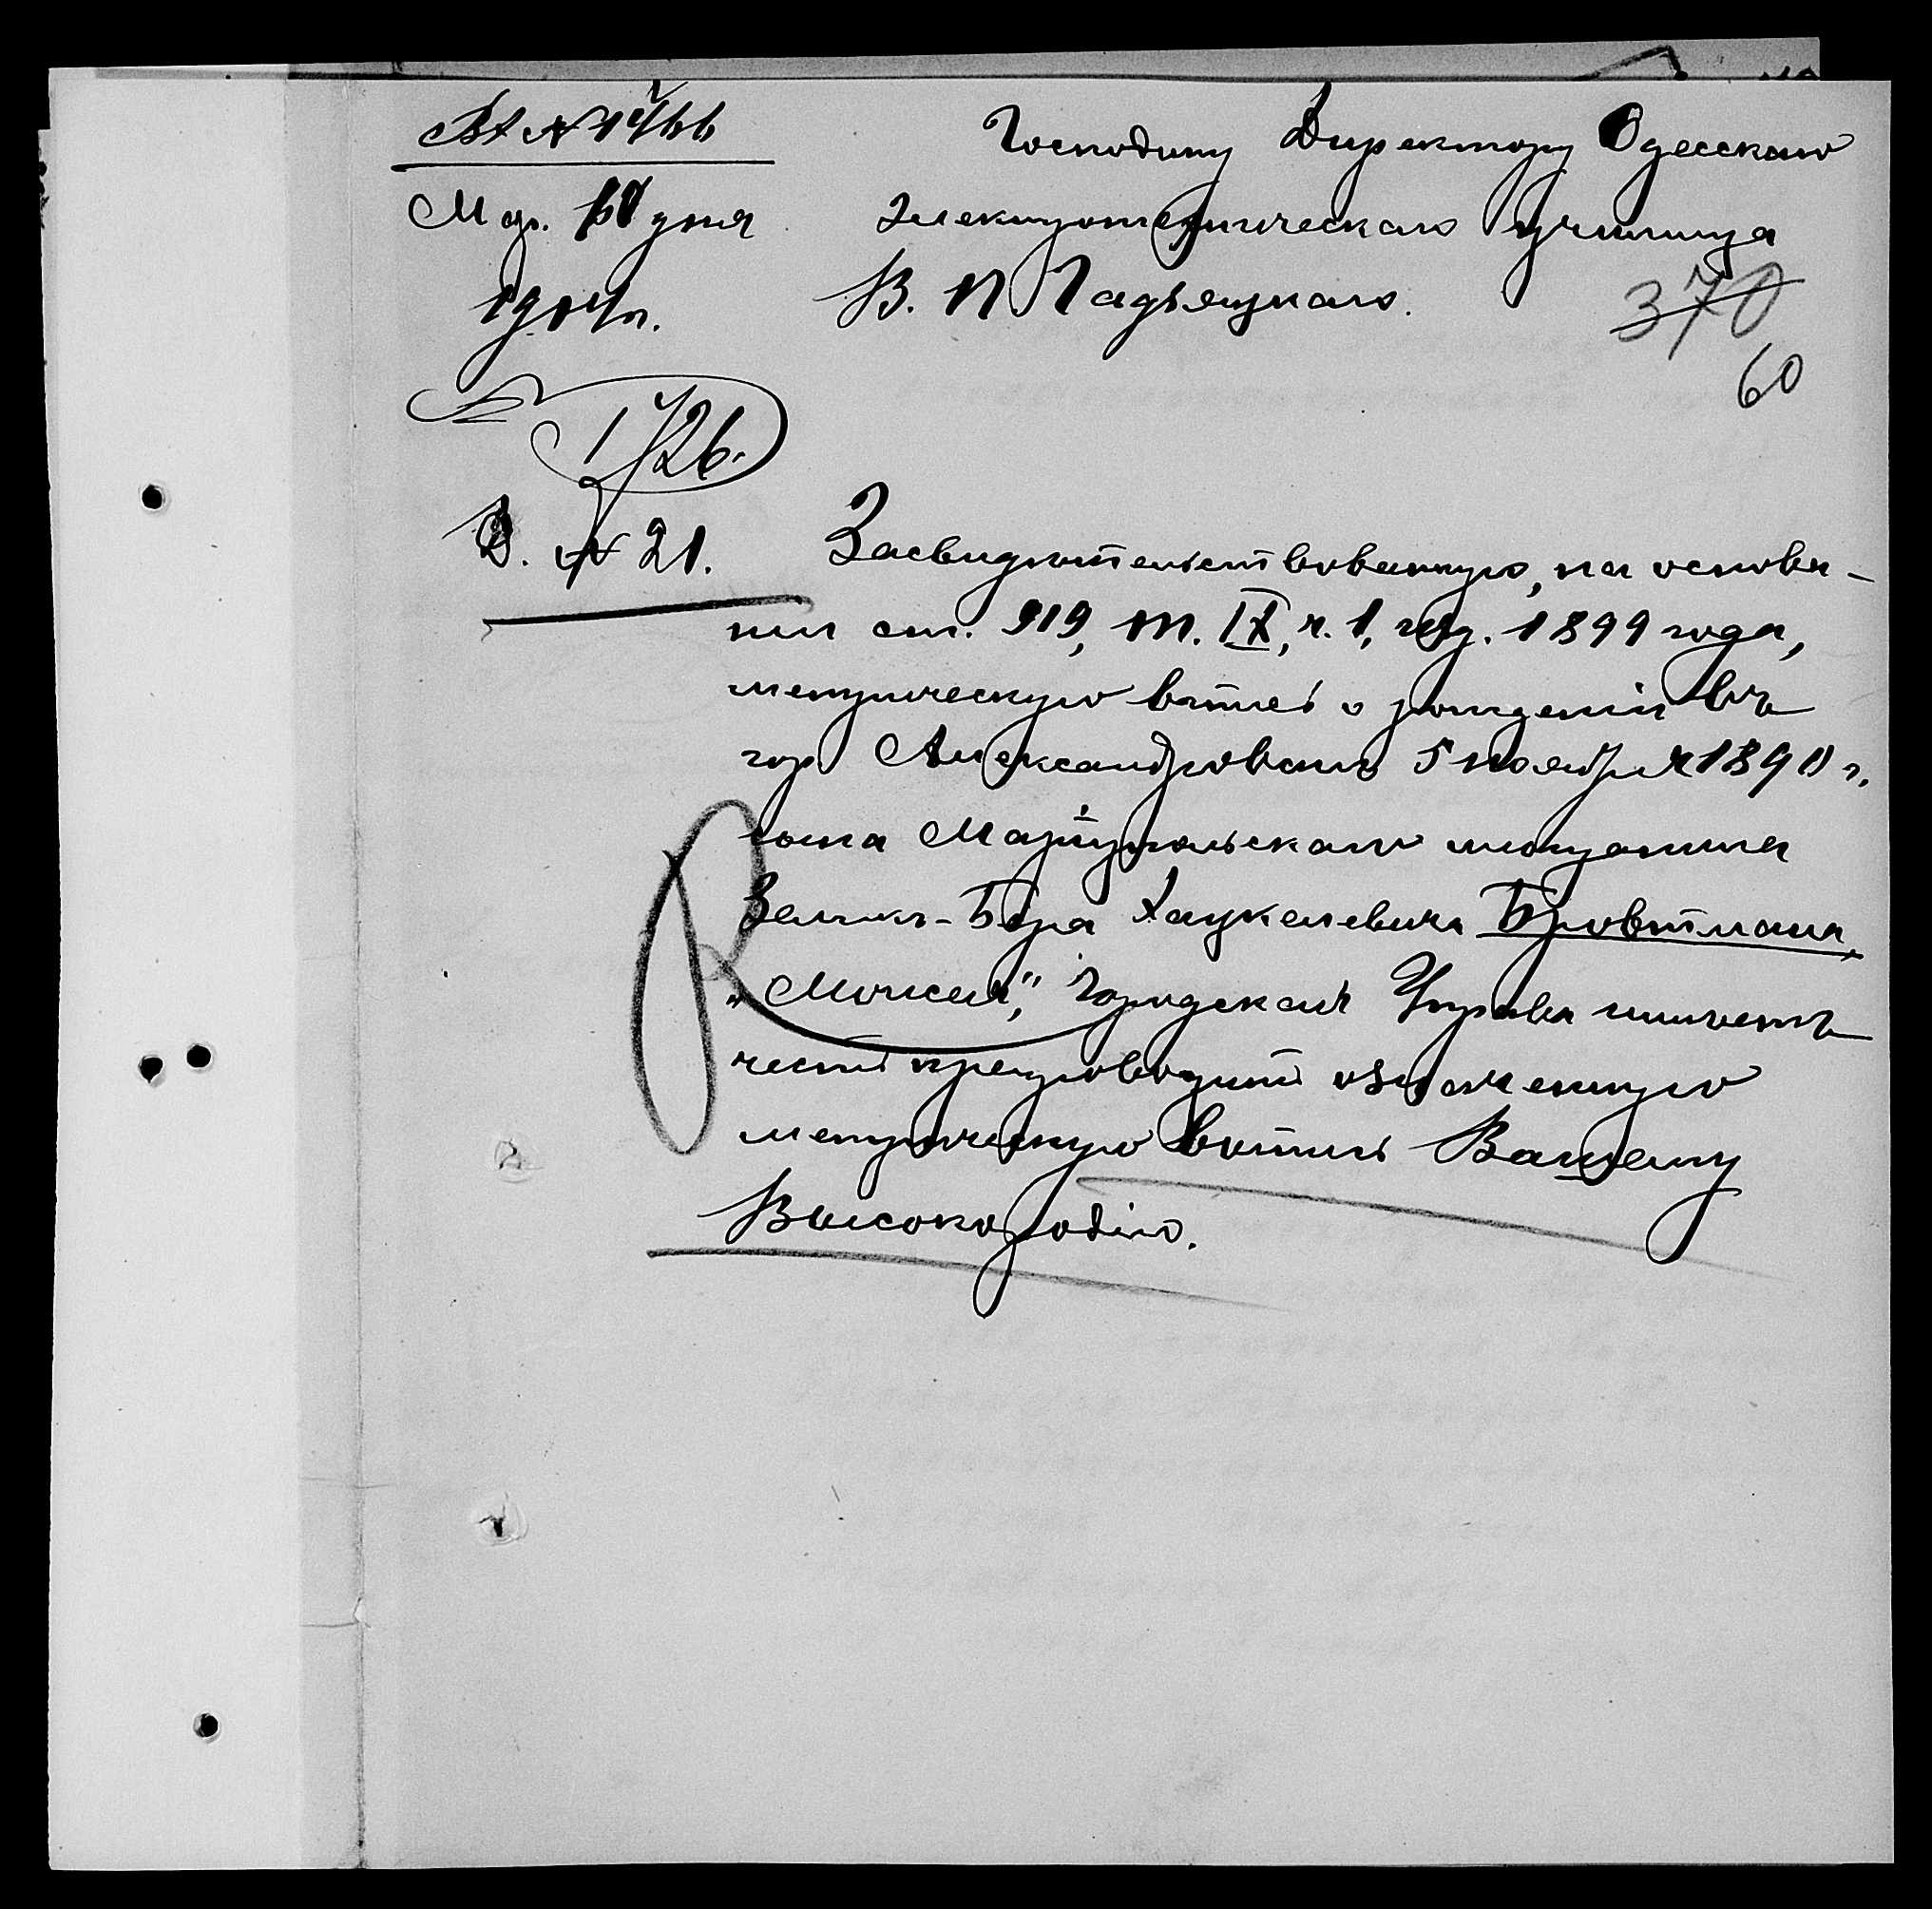 Вх № 1766
Мар.
1904 г.
Господину Директору Одесскаго
электротехническаго училища
В. П. Гадзяцкаго.
370
60
№ 1726.
Д. № 21.
Засвидѣтельствованную, на основа-
нии ст. 919, т. IX, ч. 1, изд. 1899 года,
метрическую выпись о рожденіи въ
гор. Александровскѣ 5 ноября 1890 г.
сына Маріупольскаго мѣщанина
Зелика-Бера Хацкелевича Бровтмана,
„Моисея“, Городская Управа имѣетъ
честь препроводить означенную
метрическую выпись Вашему
Высокородію.